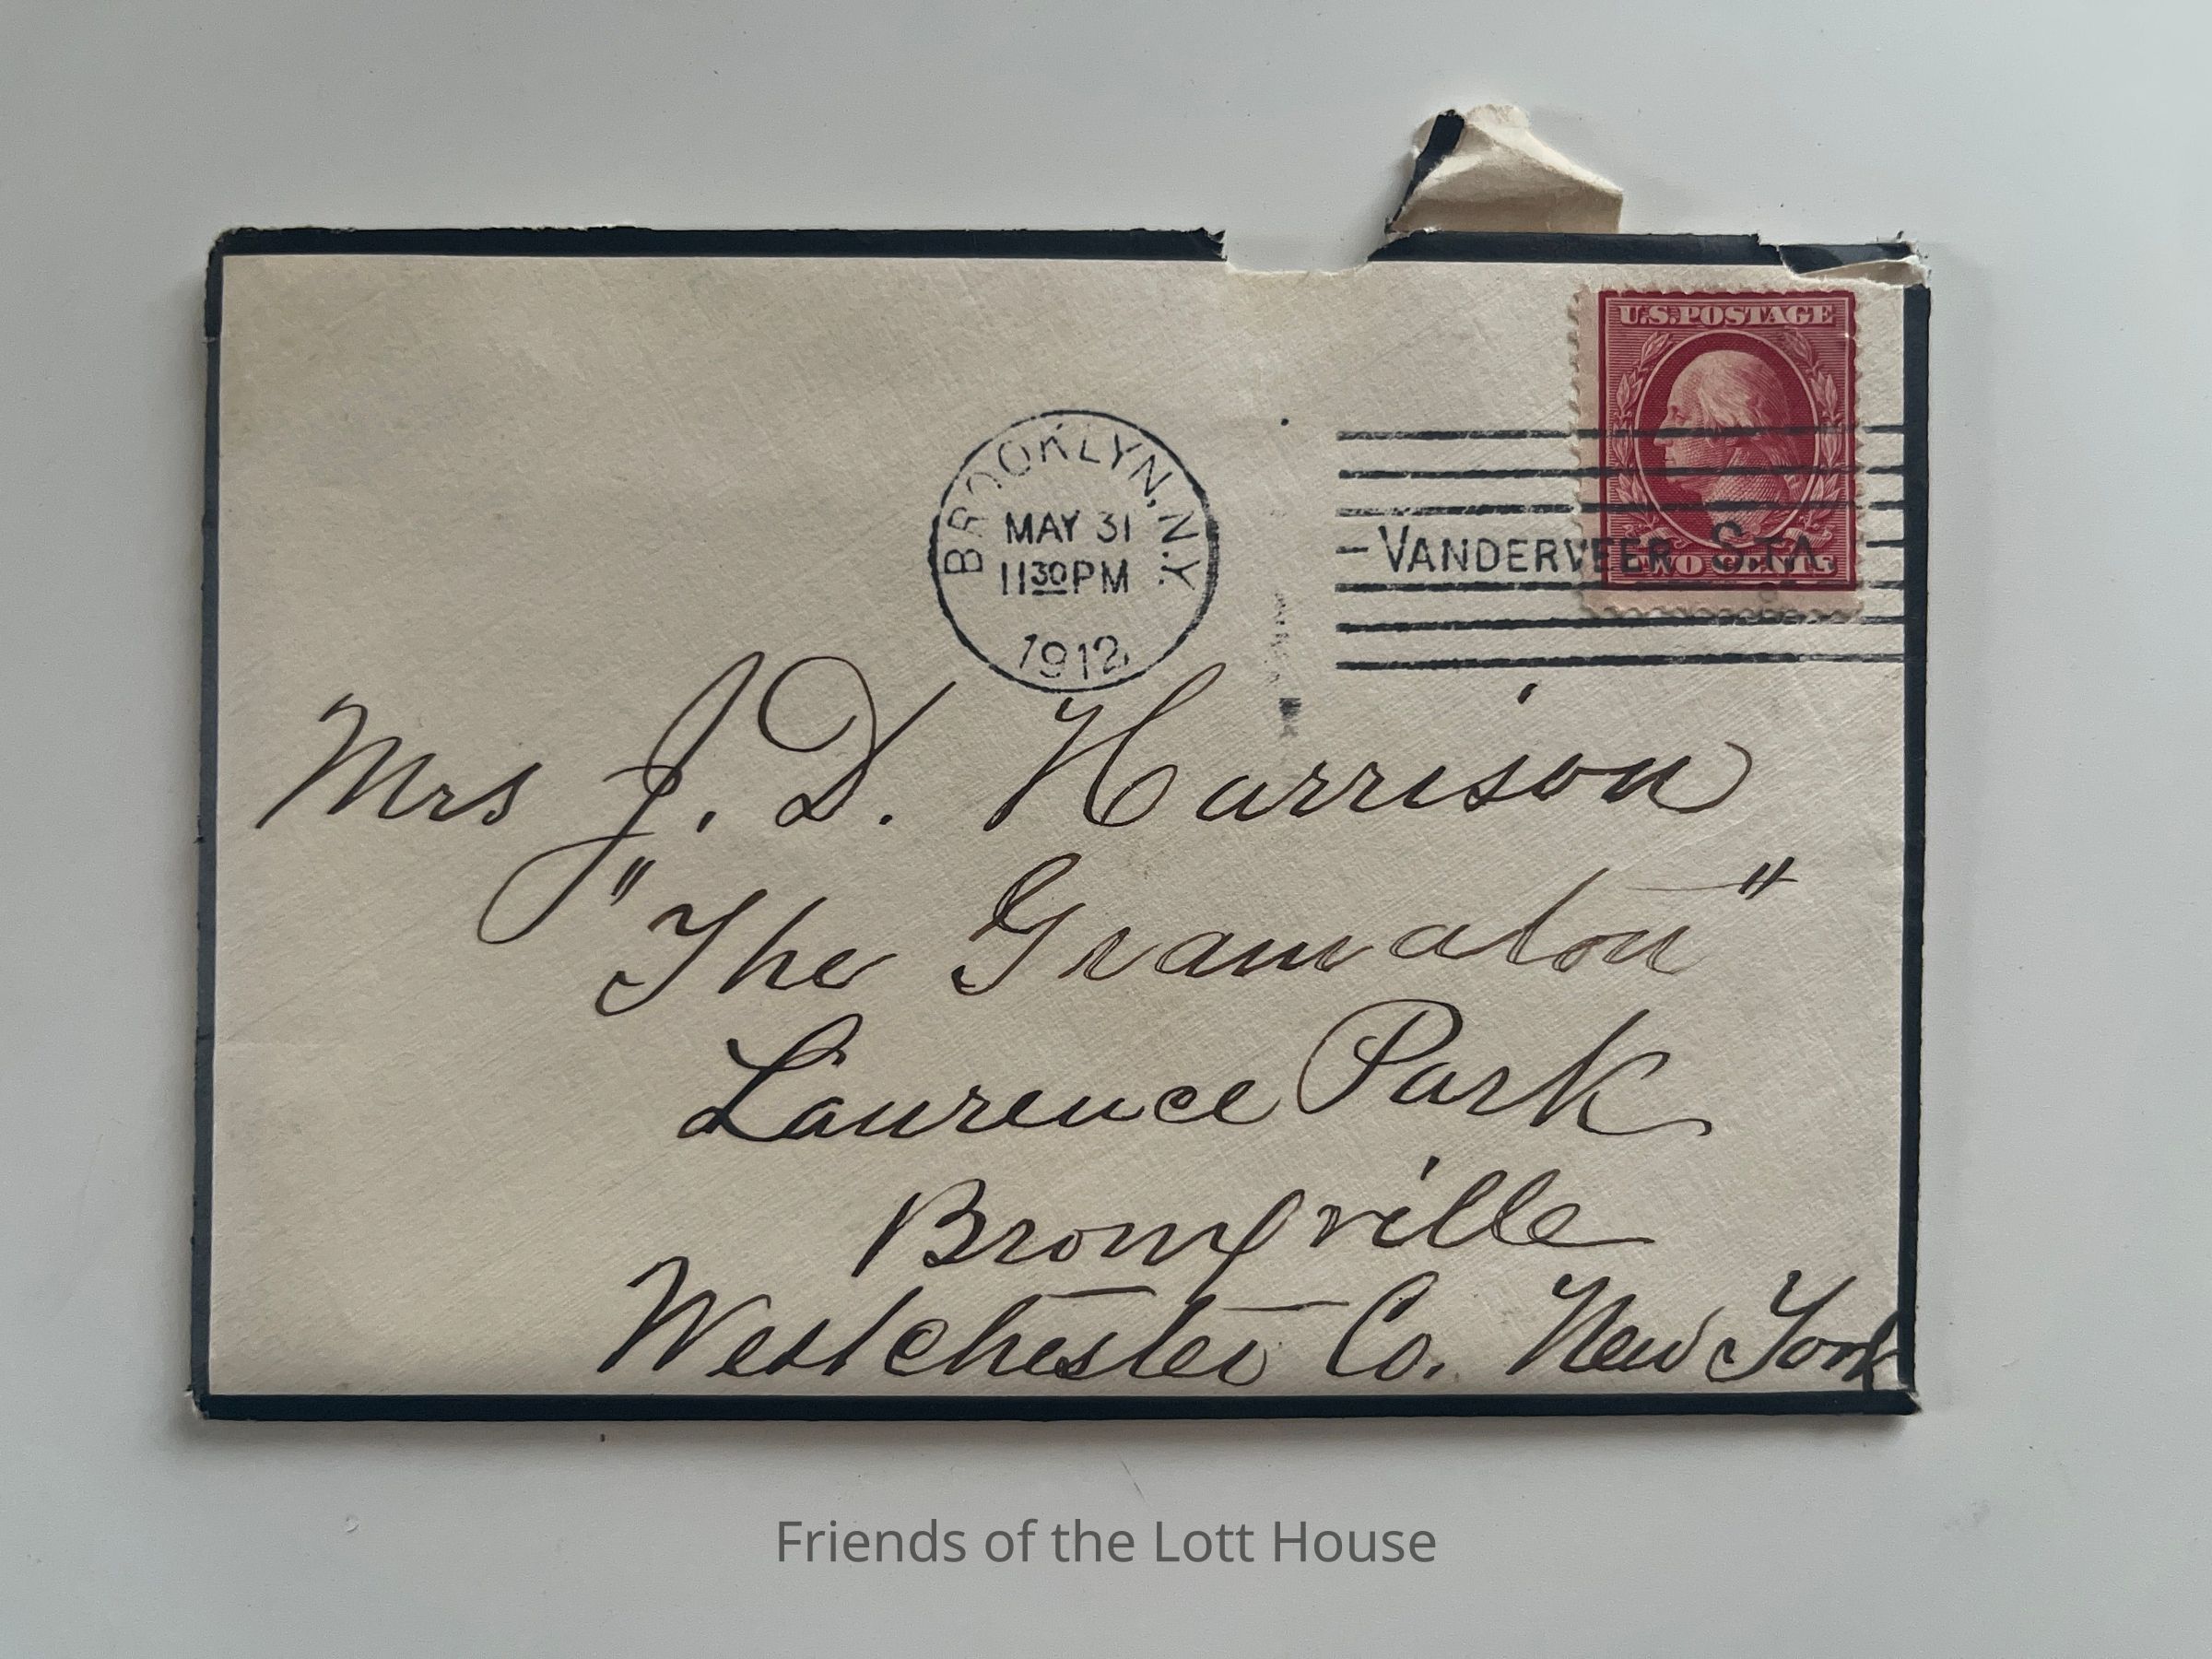 U.S. POSTAGE
BROOKLYN, N.Y.
MAY 31
11 30 PM
1912
VANDERVEER STA.
TWO CENTS
Mrs J. D. Harrison
"The Gramaton"
Laurence Park
Bronxville
Westchester Co. New York
Friends of the Lott House